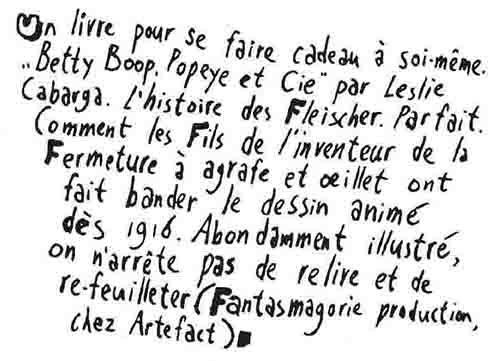 Un livre pour se faire cadeau à soi-même.
„Betty Boop, Popeye et Cie" par Leslie
Cabarga. L'histoire des Fleischer. Parfait.
Comment les Fils de l'inventeur de la
Fermeture à agrafe et œillet ont
fait bander le dessin animé
dès 1916. Abondamment illustré,
on n'arrête pas de relire et de
re-feuilleter (Fantasmagorie production,
chez Artefact)